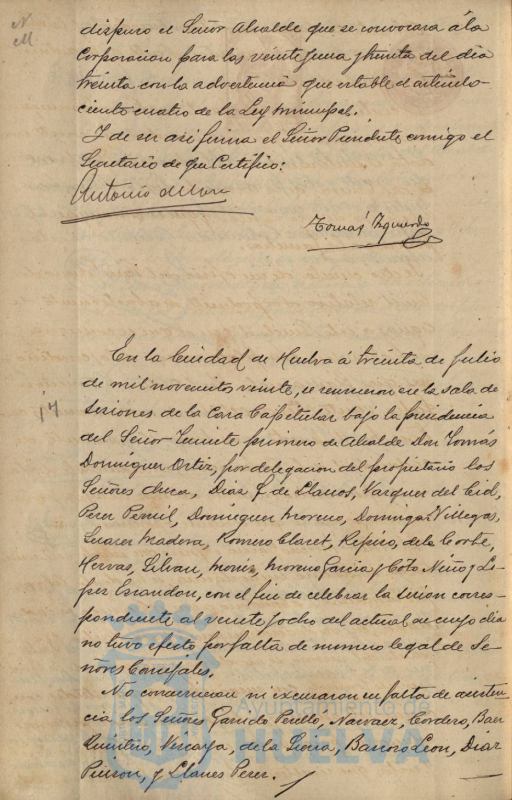 dispuso el Señor Alcalde que se convocara á la
Corporacion para las veinte y una y treinta del dia
treinta con la advertencia que establece el articulo
ciento cuatro de la Ley municipal.
Y de ser asi firma el Señor Presidente, conmigo el
Secretario de que Certifico:
Antonio de Mora
Tomás Izquierdo
En la Ciudad de Huelva á treinta de Julio
de mil novecientos veinte, se reunieron en la sala de
17
sesiones de la Casa Capitular bajo la presidencia
del Señor Teniente primero de Alcalde Don Tomás
Dominguez Ortiz, por delegacion del propietario los
Señores Checa, Diaz F. de Llanos, Vazquez del Cid,
Perez Dominguez Moreno, Dominguez Villegas,
Suarez Madera, Romero Claret, Repiso, de la Corte,
Hervas, Silvan, Moreno Garcia y Coto Niño y Lo-
pez Escandon, con el fin de celebrar la sesion corres-
pondiente al veinte y ocho del actual que en cuyo dia
no tuvo efecto por falta de numero legal de Se-
ñores Concejales.
No concurrieron ni excusaron su falta de asisten-
cia los Señores Garrido Perello, Narvaez, Cordero, Baez
Quintero, Vizcaya, de la Sierra, Barroso Leon, Diaz
Pinzon, y Llanes Perez.
Ayuntamiento de
HUELVA